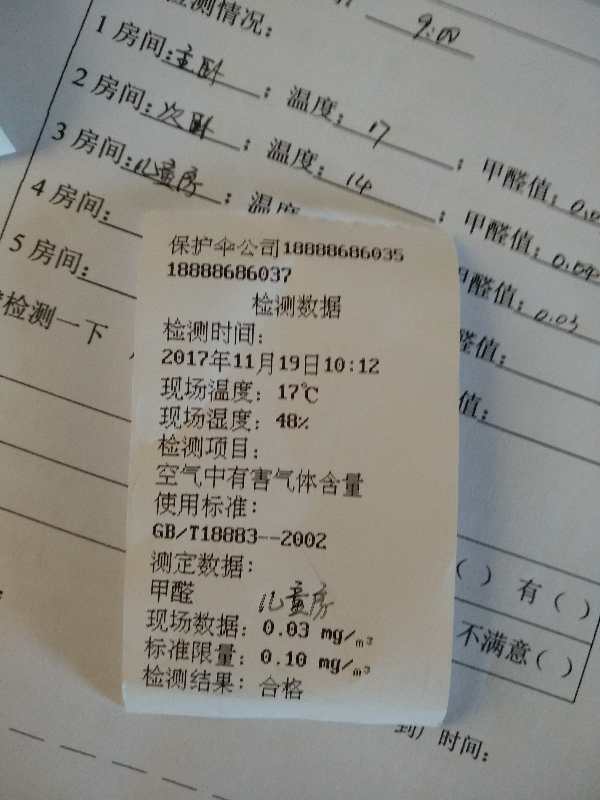 检测情况：
9:00
1 房间：主卧；温度：17；甲醛值：0.0
2 房间：次卧；温度：14；甲醛值：0.09
3 房间：儿童房；温度 甲醛值：0.03
4 房间： 醛值：
5 房间： 值：
检测一下
保护伞公司18888686035
18888686037
检测数据
检测时间：
2017年11月19日10:12
现场温度：17℃
现场湿度：48%
检测项目：
空气中有害气体含量
使用标准：
GB/T18883--2002
测定数据：
甲醛 儿童房
现场数据：0.03 mg/m³
标准限量：0.10 mg/m³
检测结果：合格
( ) 有 ( )
不满意 ( )
时间：